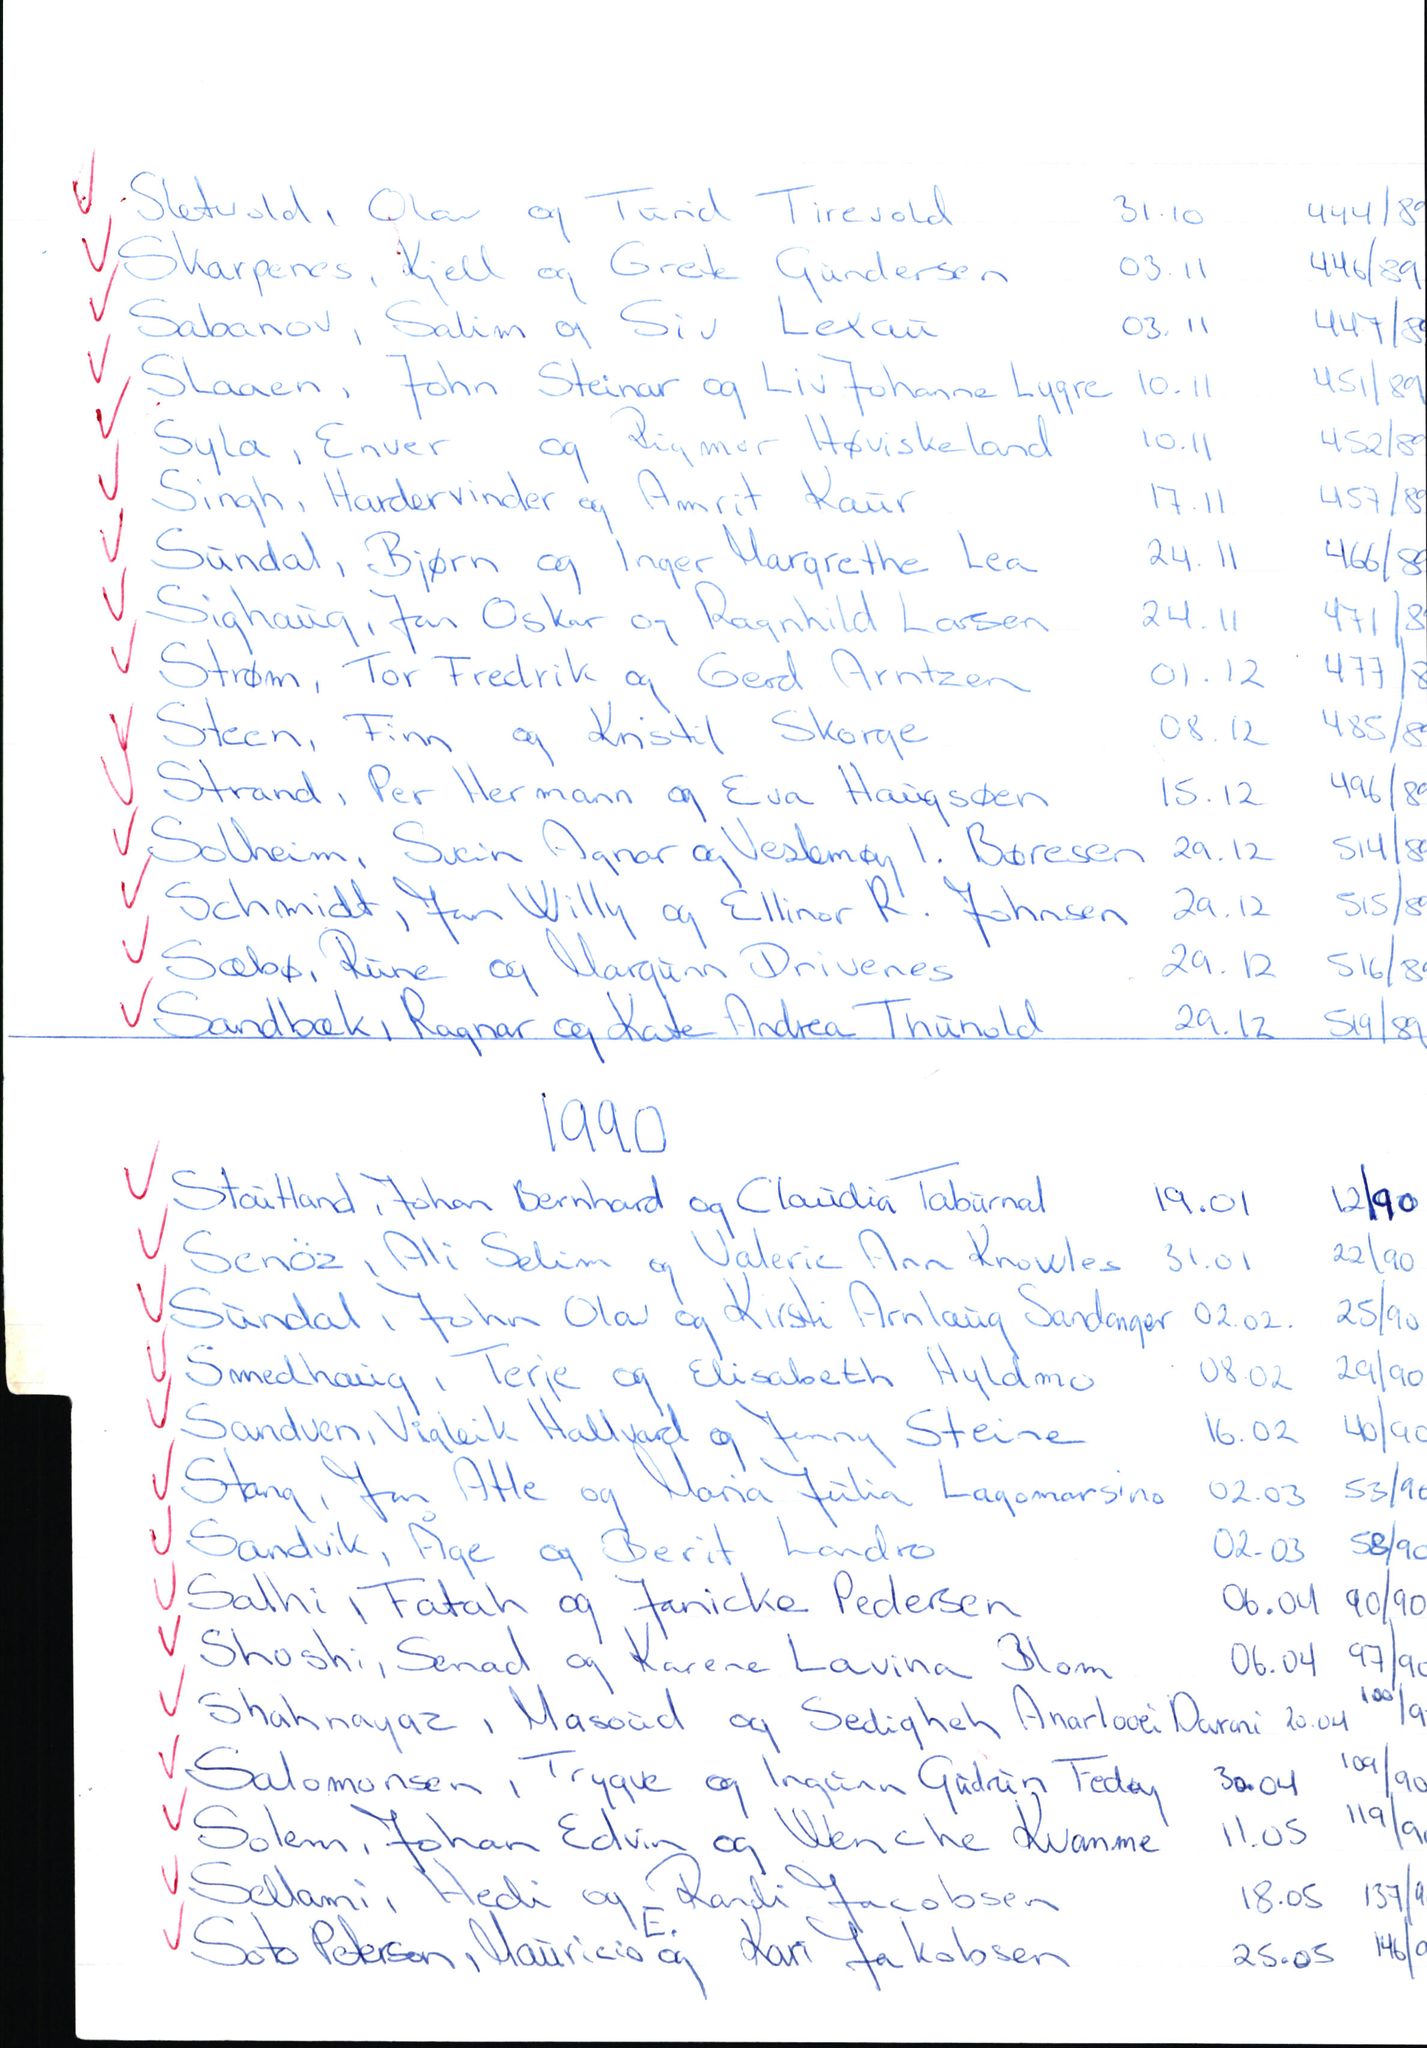 Sletvold, Olav og Turid Tirevold 31.10 444/89
Skarpenes, Kjell og Grete Gundersen 03.11 446/89
Sabanov, Salim og Siv Lexau 03.11 447/89
Slaaen, John Steinar og Liv Johanne Lygre 10.11 451/89
Syla, Enver og Rigmor Høviskeland 10.11 452/89
Singh, Hardervinder og Amrit Kaur 17.11 457/89
Sundal, Bjørn og Inger Margrethe Lea 24.11 466/89
Sighaug, Jan Oskar og Ragnhild Larsen 24.11 471/8
Strøm, Tor Fredrik og Gerd Arntzen 01.12 477/8
Steen, Finn og Kristil Skorge 08.12 485/89
Strand, Per Hermann og Eva Haugsøen 15.12 496/89
Solheim, Svein Agnar og Veslemøy I. Børesen 29.12 514/89
Schmidt, Jan Willy og Ellinor R. Johnsen 29.12 515/89
Sæbø, Rune og Margunn Drivenes 29.12 516/89
Sandbæk, Ragnar og Kate Andrea Thunold 29.12 519/89
1990
Stautland, Johan Bernhard og Claudia Taburnal 19.01 12/90
Senöz, Ali Selim og Valerie Ann Knowles 31.01 22/90
Sundal, John Olav og Kirsti Arnlaug Sandanger 02.02. 25/90
Smedhaug, Terje og Elisabeth Hyldmo 08.02 29/90
Sandven, Vigleik Hallvard og Jenny Steine 16.02 40/90
Stang, Jan Atle og Maria Julia Lagomarsino 02.03 53/90
Sandvik, Åge og Berit Landro 02.03 58/90
Salhi, Fatah og Janicke Pedersen 06.04 90/90
Shoshi, Senad og Karene Lavina Blom 06.04 97/90
Shahnayaz, Masoud og Sedigheh Anarlooei Darani 20.04 100/9
Salomonsen, Trygve og Ingunn Gudrun Fedøy 30.04 109/90
Solem, Johan Edvin og Wenche Kvamme 11.05 119/9
Sellami, Hedi og Randi Jacobsen 18.05 137/9
Soto Peterson, Mauricio E. og Kari Jakobsen 25.05 146/9